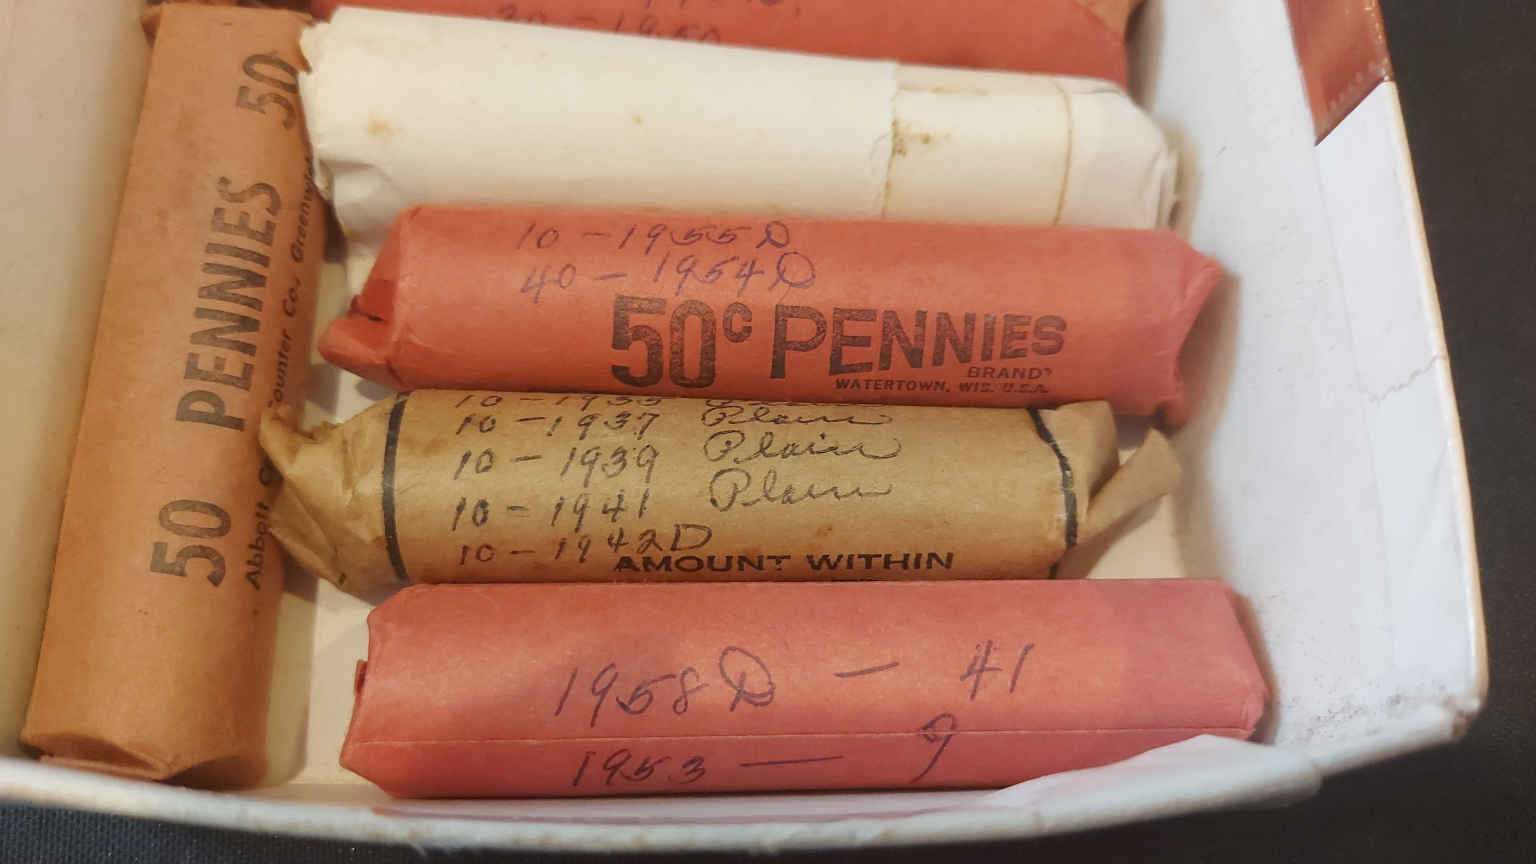 1950
50 PENNIES 50
10 - 1955 D
40 - 1954 D
50¢ PENNIES
BRAND?
WATERTOWN, WIS. U.S.A.
Plain
10 - 1937 Plain
10 - 1939 Plain
10 - 1941 Plain
10 - 1942D
AMOUNT WITHIN
1958 D - 41
1953 - 9